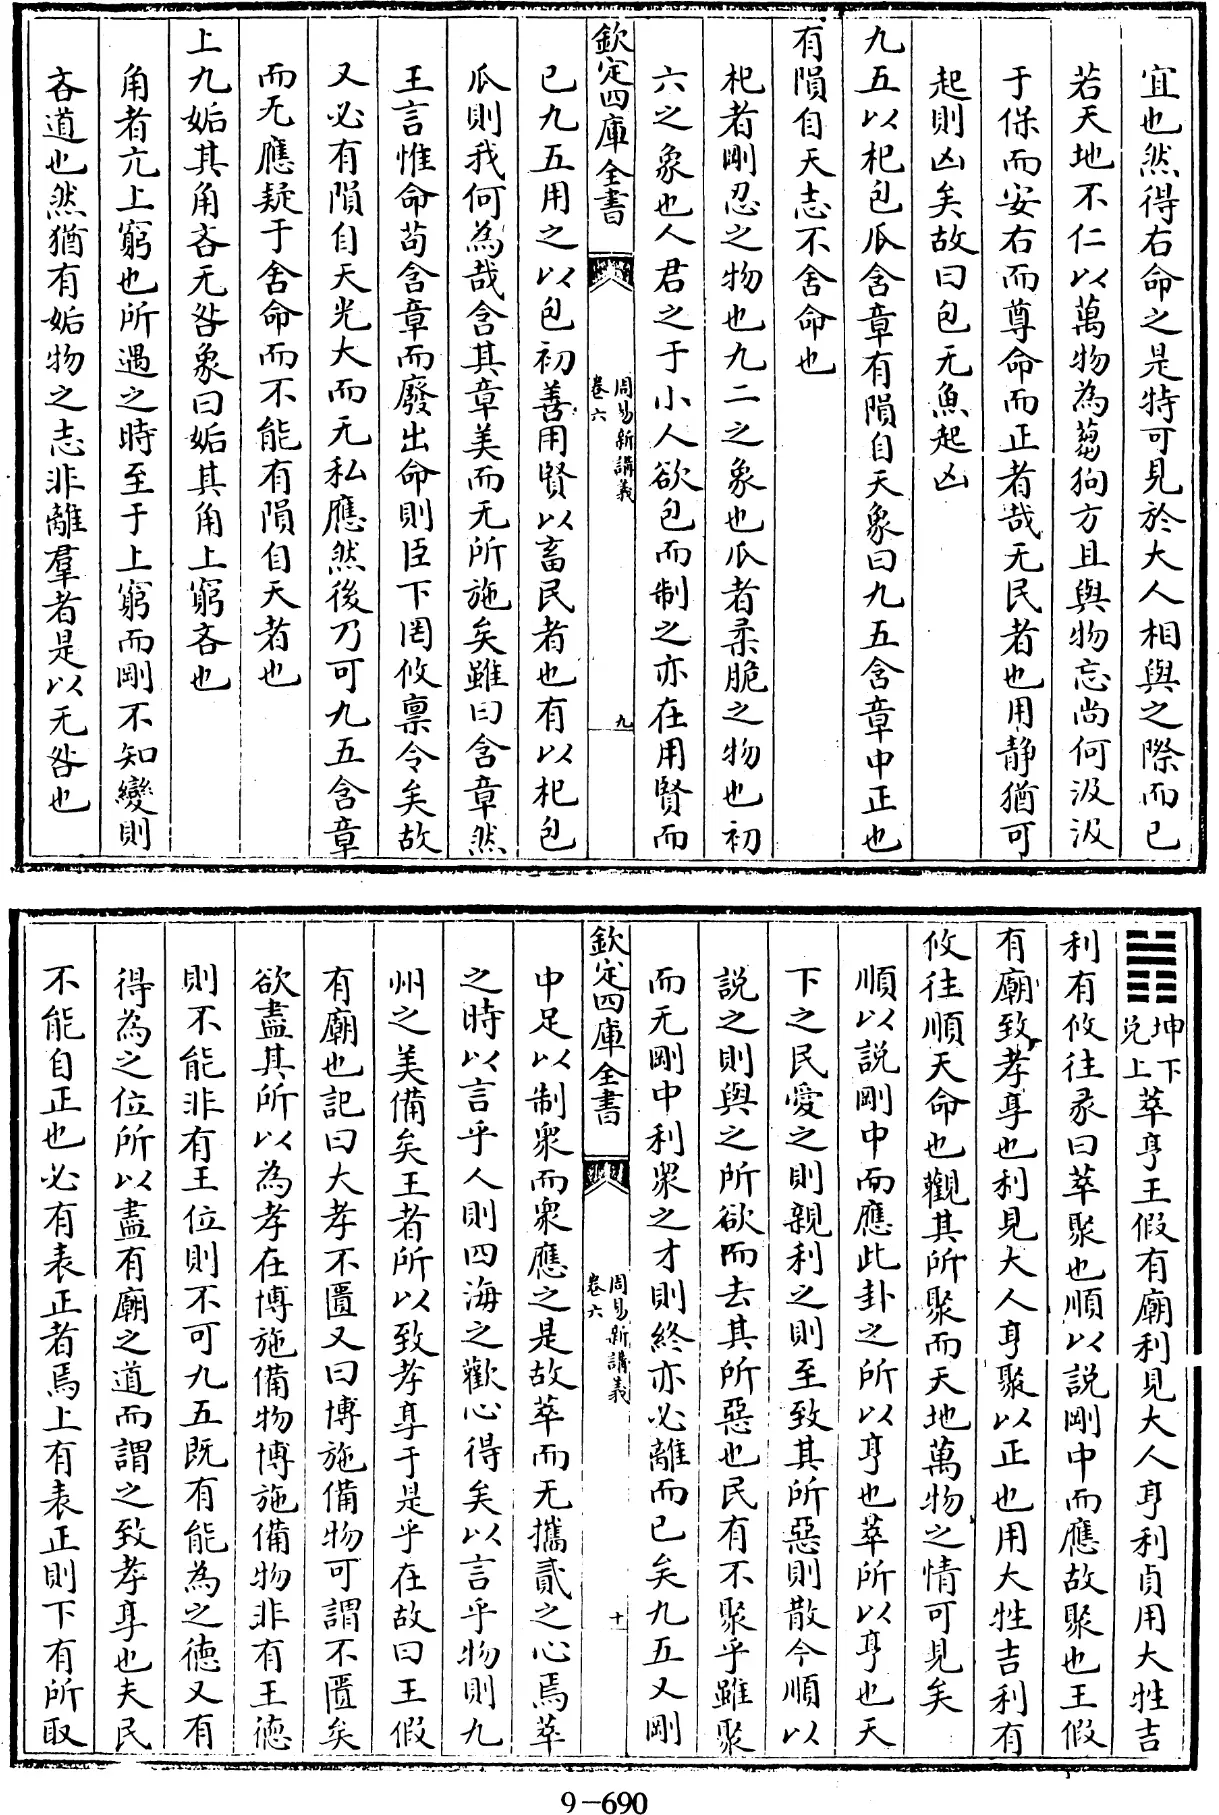 宜也然得右命之是特可見於大人相與之際而已
若天地不仁以萬物為芻狗方且與物忘尚何汲汲
于保而安右而尊命而正者哉无民者也用静猶可
起則凶矣故曰包无魚起凶
九五以杞包瓜含章有隕自天象曰九五含章中正也
有隕自天志不舍命也
杞者剛忍之物也九二之象也瓜者柔脆之物也初
六之象也人君之于小人欲包而制之亦在用賢而
欽定四庫全書
周易新講義
卷六
九
已九五用之以包初善用賢以畜民者也有以杞包
瓜則我何為哉含其章美而无所施矣雖曰含章然
王言惟命苟含章而廢出命則臣下罔攸禀令矣故
又必有隕自天光大而无私應然後乃可九五含章
而无應疑于舍命而不能有隕自天者也
上九姤其角吝无咎象曰姤其角上窮吝也
角者亢上窮也所遇之時至于上窮而剛不知變則
吝道也然猶有姤物之志非離羣者是以无咎也
䷬坤下
兌上萃亨王假有廟利見大人亨利貞用大牲吉
利有攸往彖曰萃聚也順以說剛中而應故聚也王假
有廟致孝享也利見大人亨聚以正也用大牲吉利有
攸往順天命也觀其所聚而天地萬物之情可見矣
順以說剛中而應此卦之所以亨也萃所以亨也天
下之民愛之則親利之則至致其所惡則散今順以
說之則與之所欲而去其所惡也民有不聚乎雖聚
而无剛中利衆之才則終亦必離而已矣九五又剛
欽定四庫全書
周易新講義
卷六
十
中足以制衆而衆應之是故萃而无攜貳之心焉萃
之時以言乎人則四海之歡心得矣以言乎物則九
州之美備矣王者所以致孝享于是乎在故曰王假
有廟也記曰大孝不匱又曰博施備物可謂不匱矣
欲盡其所以為孝在博施備物博施備物非有王德
則不能非有王位則不可九五既有能為之德又有
得為之位所以盡有廟之道而謂之致孝享也夫民
不能自正也必有表正者焉上有表正則下有所取
9-690